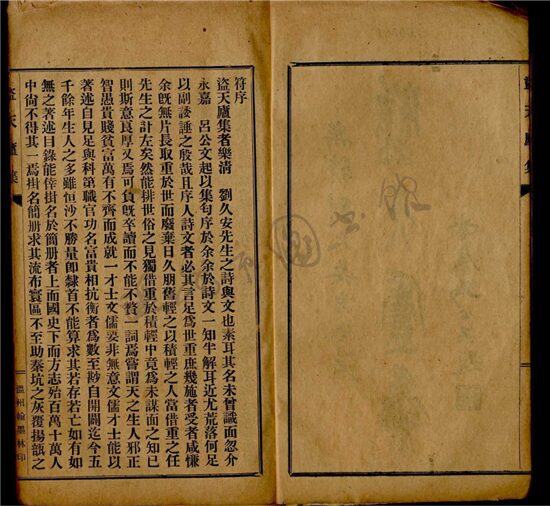 符序
盜天廬集者樂淸 劉久安先生之詩與文也素耳其名未曾識面忽介
永嘉 呂公文起以集句序於余余於詩文一知半解耳近尤荒落何足
以副諉諈之殷哉且序人詩文者必其言足爲世重庶幾施者受者咸慊
余旣無片長取重於世而廢棄日久朋舊輕之以積輕之人當借重之任
先生之計左矣然能排世俗之見獨借重於積輕中竟爲未謀面之知已
則斯意良厚又爲可負旣卒讀而不能不贅一詞焉嘗謂天之生人邪正
智愚貴賤貧富萬有不齊而成就一才士文儒要非無意文儒才士能以
著述自見足與科第職官功名富貴相抗衡者爲數至尠自開闢迄今五
千餘年生人之多雖恒沙不勝量卽隸首不能算求其若存若亡如有如
無之著述目錄能倖掛名於簡册者上而國史下而方志殆百萬十萬人
中尙不得其一焉掛名簡册求其流布寰區不至助秦坑之灰覆揚瓿之
盜天廬集
溫州翰墨林印